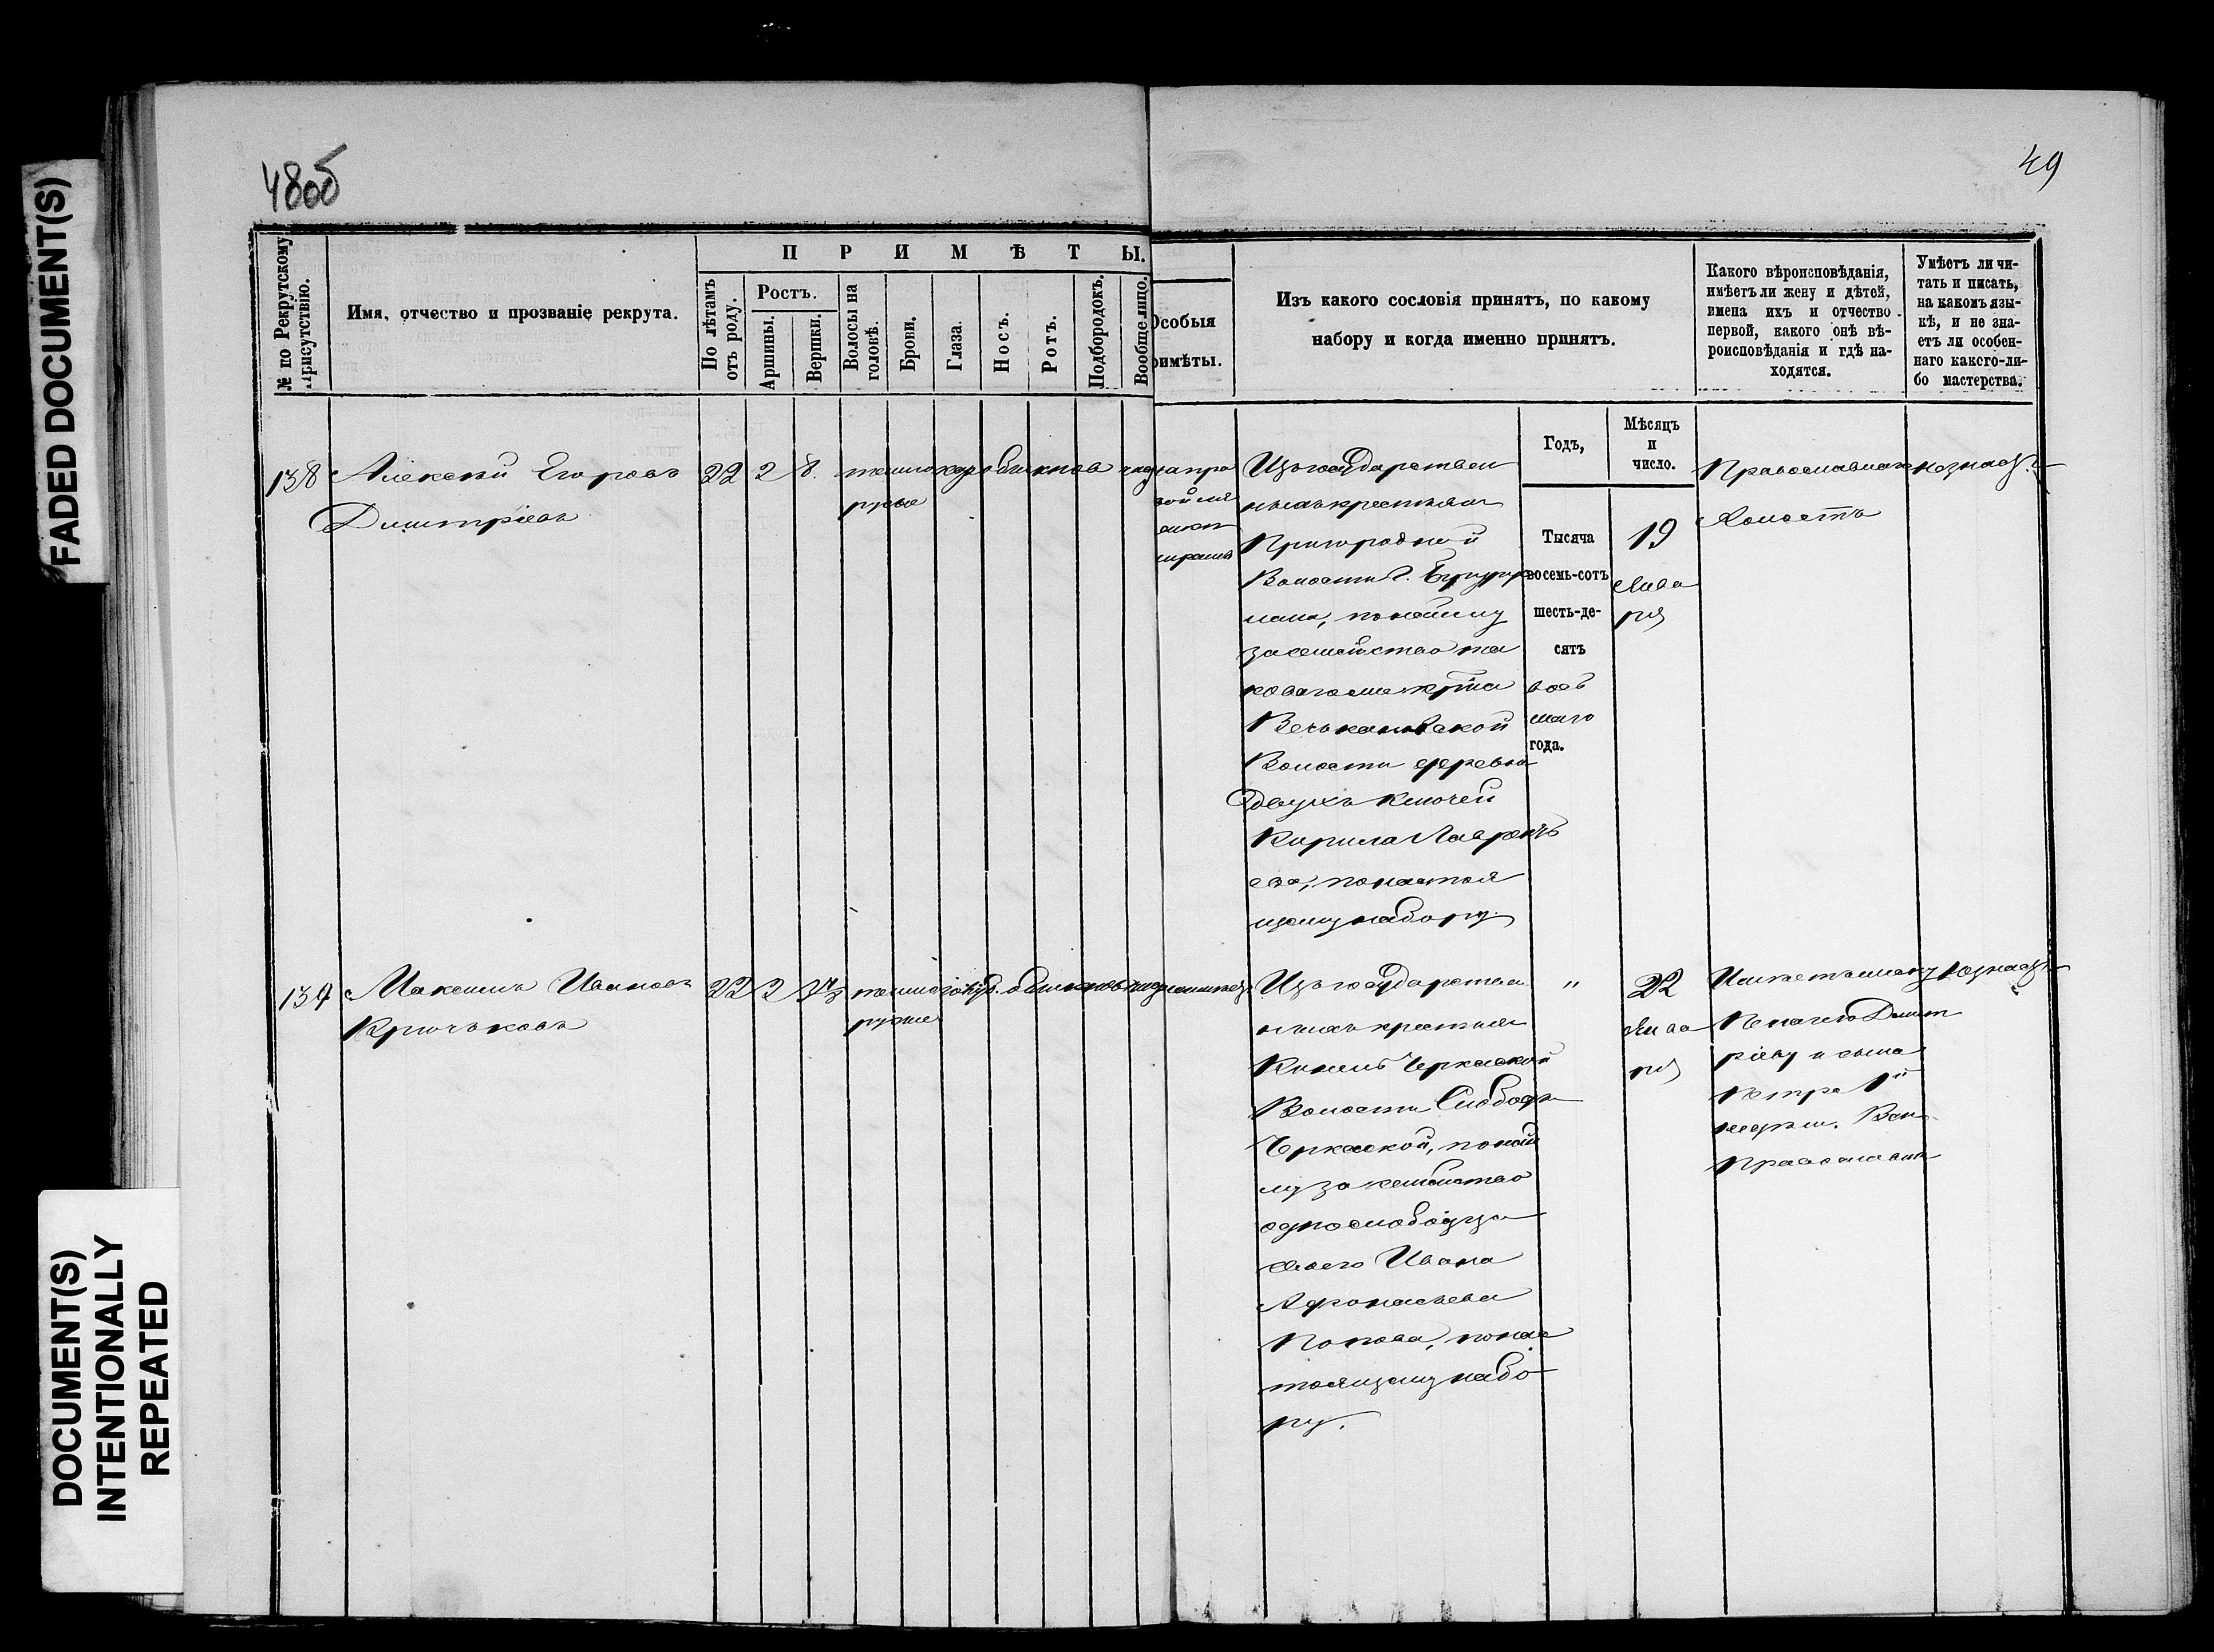 FADED DOCUMENT(S)
DOCUMENT(S)
INTENTIONALLY
REPEATED
48об
49
№ по Рекрутскому
Присутствію.
Имя, отчество и прозваніе рекрута.
ПРИМѢТЫ.
По лѣтамъ
отъ роду.
Ростъ.
Аршины.
Вершки.
Волосы на
головѣ.
Брови.
Глаза.
Носъ.
Ротъ.
Подбородокъ.
Вообще лицо.
Особыя
римѣты.
Изъ какого сословія принятъ, по какому
набору и когда именно принятъ.
Какого вѣроисповѣданія,
имѣетъ ли жену и дѣтей,
имена ихъ и отчество
первой, какого онѣ вѣ-
роисповѣданія и гдѣ на-
ходятся.
Умѣетъ ли чи-
тать и писать,
на какомъ язы-
кѣ, и не зна-
етъ ли особен-
наго какого-ли-
бо мастерства.
Годъ,
Мѣсяцъ
и
число.
138
Алексѣй Егоровъ
Димитріевъ
22 2 8.
темно
русые
кар обыкнов чис
на пра
Изъ государствен
ныхъ крестьянъ
Пригородной
Волости г. Бугурус
лана, по найму
за семейство та
коваго же кр̃на
Вечькановской
Волости деревни
Двухъ Ключей
Кирила Лавренть
ева, по настоя
щему набору.
Тысяча
восемь-сотъ
шесть-де-
сятъ
вось
маго
года.
19
Янва
ря
Православнаго
Холостъ
не знаетъ
139
Максимъ Ивановъ
Крючьковъ
22 2
темно
русые
голуб. обыкнов чис
Изъ государствен
ныхъ крестьянъ
Кинель Черкаской
Волости Слободы
Черкаской, по най
му за семейство
однослободца
своего Ивана
Афонасьева
Попова, по нас
тоящему набо
ру.
"
22
Янва
ря
Имѣетъ жену
Пелагею Димит
ріеву и сына
Петра 1й
недѣли. Вѣн
Православн
не знаетъ